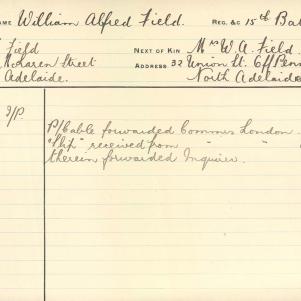 NAME William Alfred Field. REG. &C 15th Bat
Field NEXT OF KIN Mrs W. A. Field
McLaren Street ADDRESS 32 Union St. Off Penn
Adelaide. North Adelaide
P/Cable forwarded Commrs London
"Slip" received from " "
therein forwarded Inquirer.